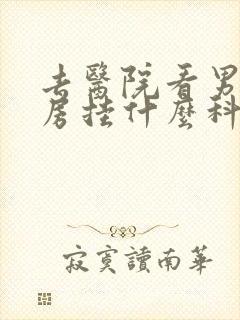 去醫院看男
房挂什麼科
寂寞讀南華